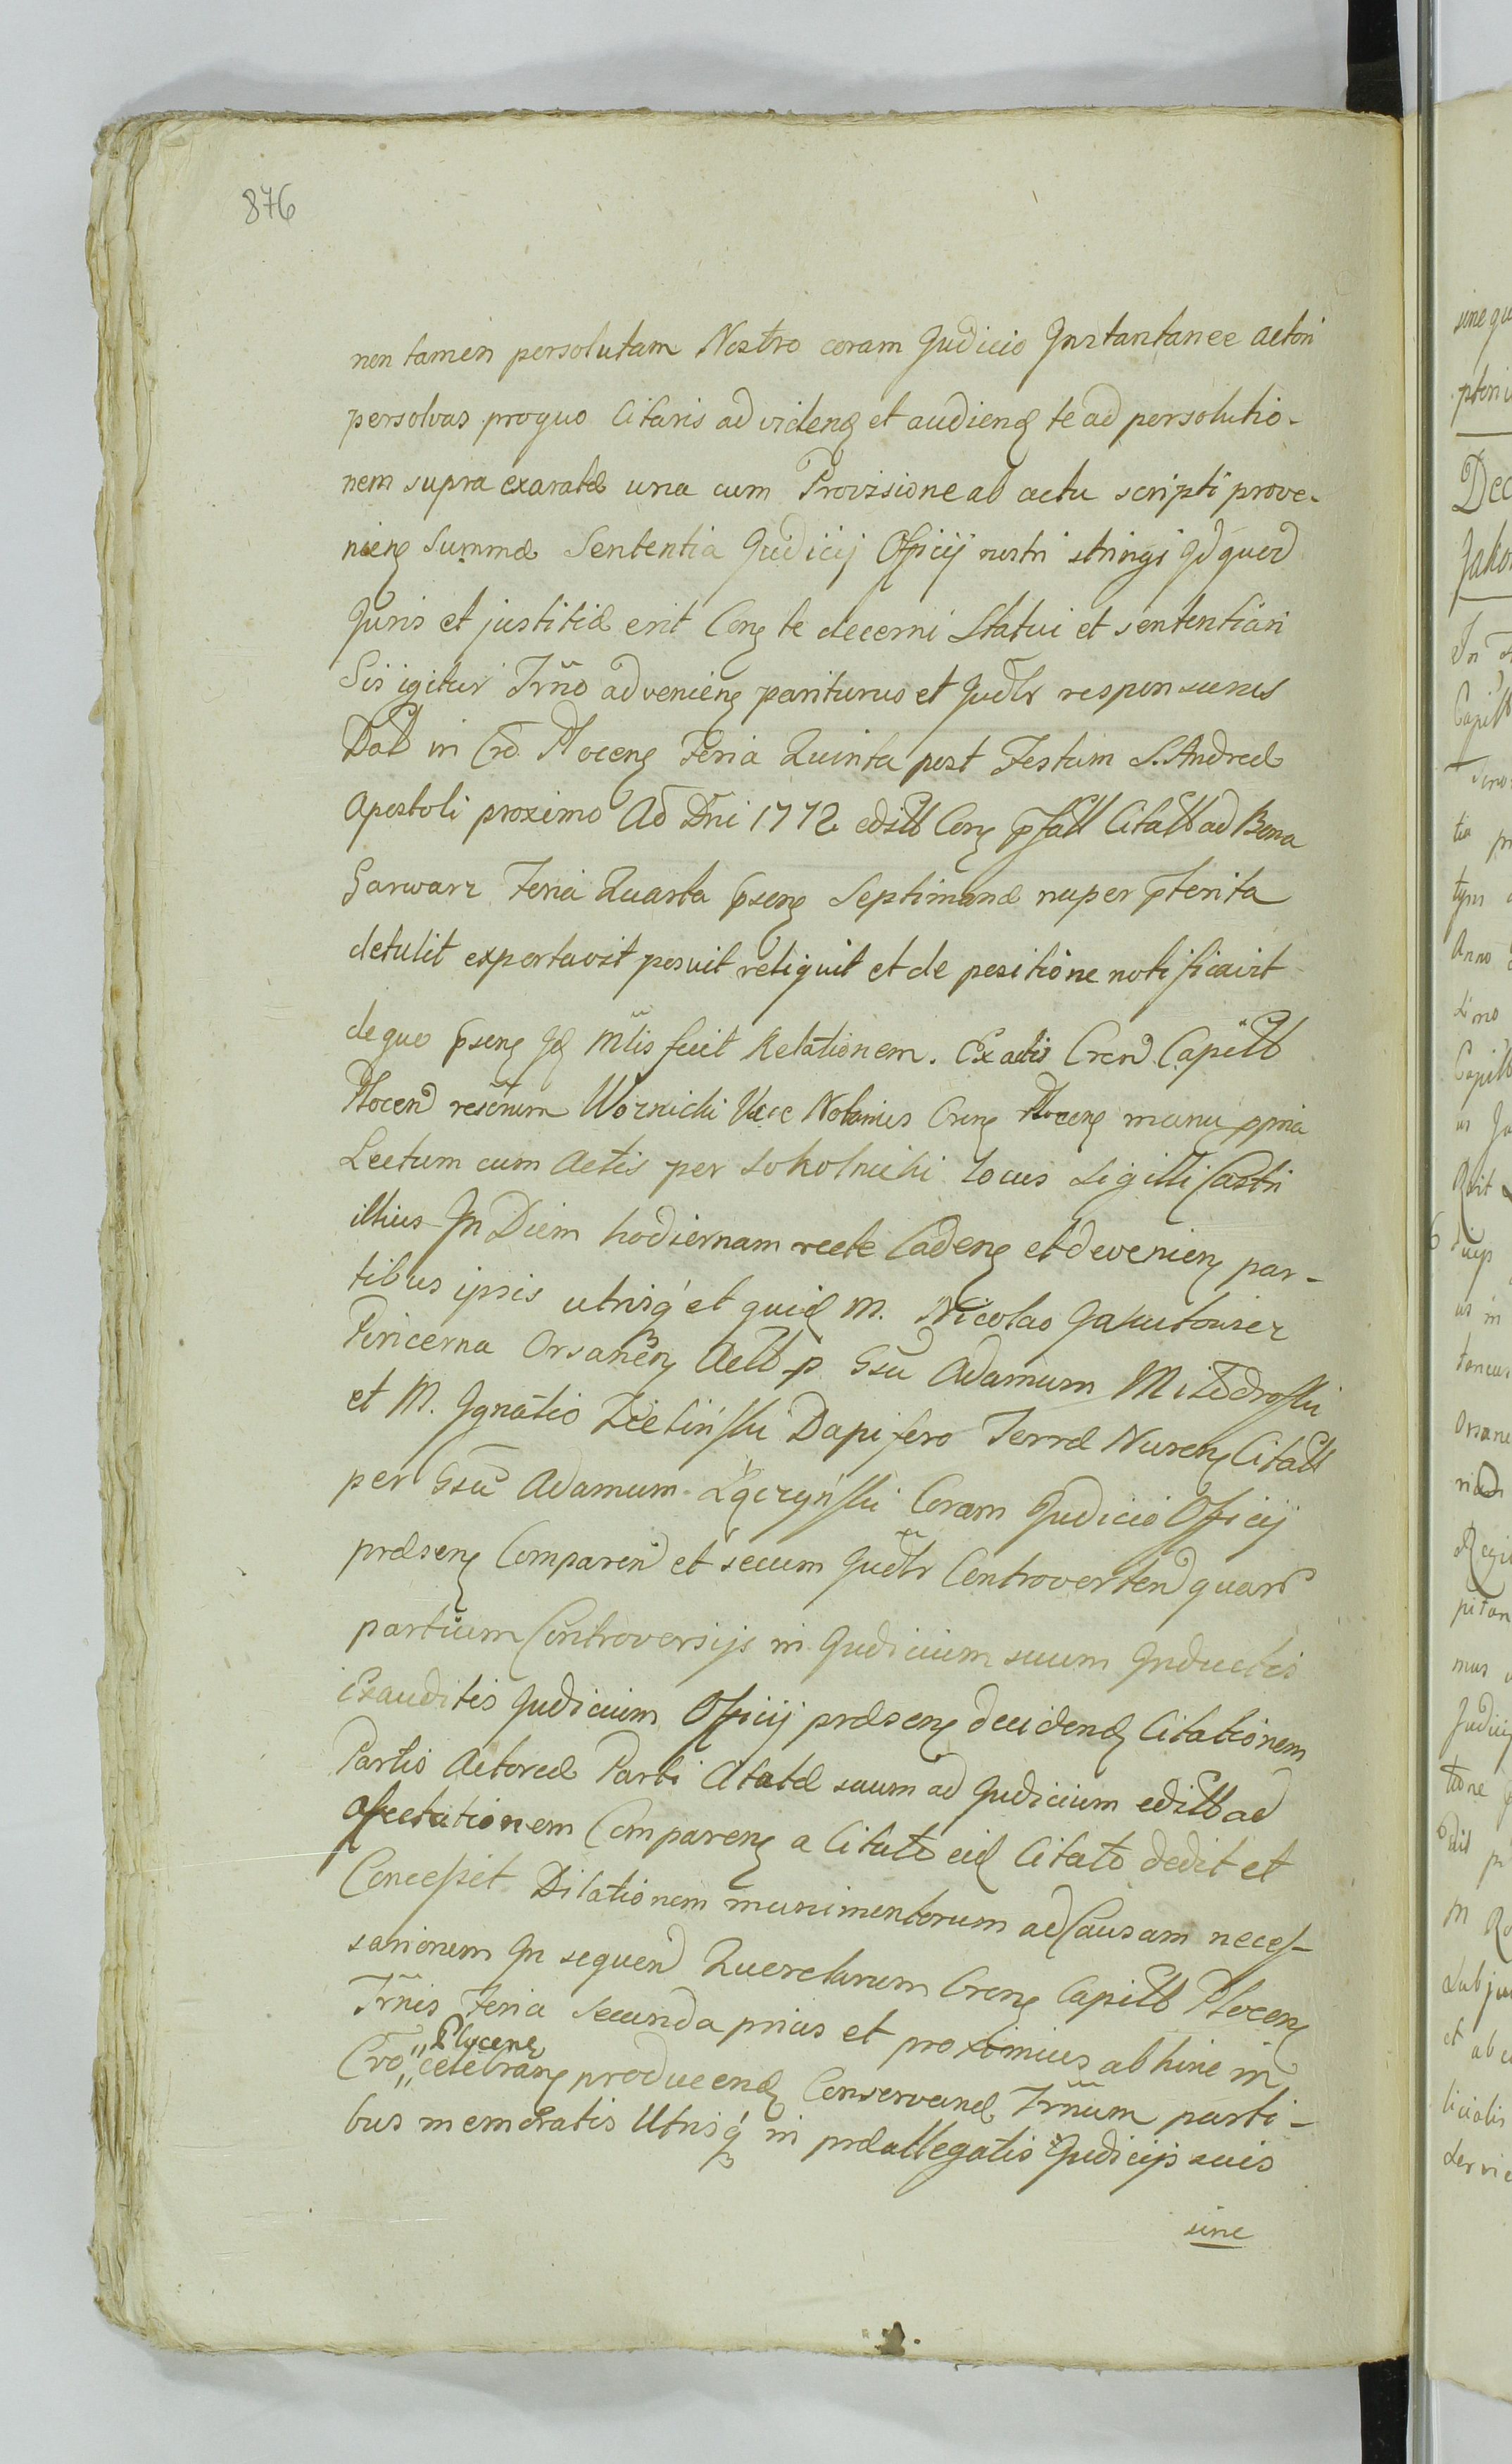 876
non tamen persolutam Nostro coram Judicio Instantanee actori
persolvas proquo Citaris ad videnđ et audienđ te ad persolutio-
nem supra exaratæ una cum Provisione ab actu scripti prove-
nienʒ Summæ Sententia Judicij Officij nostri stringi Idquod
Juris et justitiæ erit Conʒ te decerni Statui et sententiari
Sis igitur Trño advenienʒ pariturus et Judłr responsurus
Datt in Cr̃o Plocenʒ Feria Quinta post Festum S. Andreæ
Apostoli proximo Aõ Dñi 1772 editt Conʒ pfatt Citatt ad Bona
Garwarz Feria Quarta pſenʒ Septimanæ nuper pterita
detulit exportavit posuit reliquit et de positione notificavit
dequo pſenʒ Iđ Mĩlis fecit Relationem. Ex actis Cren̄ Capitt
Plocen̄ rescriptum Woznicki Vice Notarius Crenʒ Plocenʒ manu ppria
Lectum cum Actis per Sokolnicki Locus Sigilli Castri
illius In Diem hodiernam recte Cadenʒ et devenienʒ par-
tibus ipsis utrisq́ et quiđ M. Nicolao Jakubowicz
Pincerna Orsanenʒ Actt p Gsũ Adamum Mitodroſki
et M. Ignatio Zielińſki Dapifero Terræ Nurenʒ Citatt
per Gsũ Adamum Łączyńſki Coram Judicio Officij
præsenʒ Comparen̄ et secum Judłr Controverten̄ quar̃
partium Controversijs in Judicium suum Inductis
Exauditis Judicium Officij præsenʒ decidenđ Citationem
Partis Actoreæ Parti Citatæ suum ad Judicium editt ad
affectationem Comparenʒ a Citato eiđ Citato dedit et
Conceſsit Dilationem munimentorum ad Causam neceſ-
sariorum In sequen̄ Querelarum Crenʒ Capitt Plocenʒ
Trñis Feria Secunda prius et proximius abhinc in
Cr̃o "Plocenʒ" celebranʒ producenđ Conservanđ Trñum parti-
bus memoratis Utrisq́ in præallegatis Judicijs suis
sine